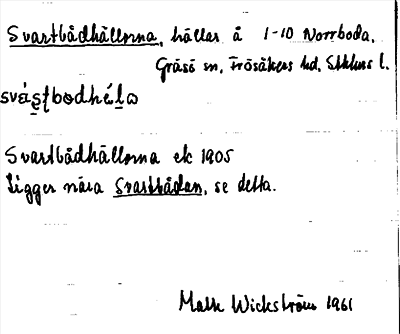 Svartbådhällorna, hällar å 1-10 Norrboda,
Gräsö sn, Frösåkers hd, Sthlms l.
Svartbådhällorna ek 1905
Ligger nära Svartbådan, se detta.
Mats Wickström 1961